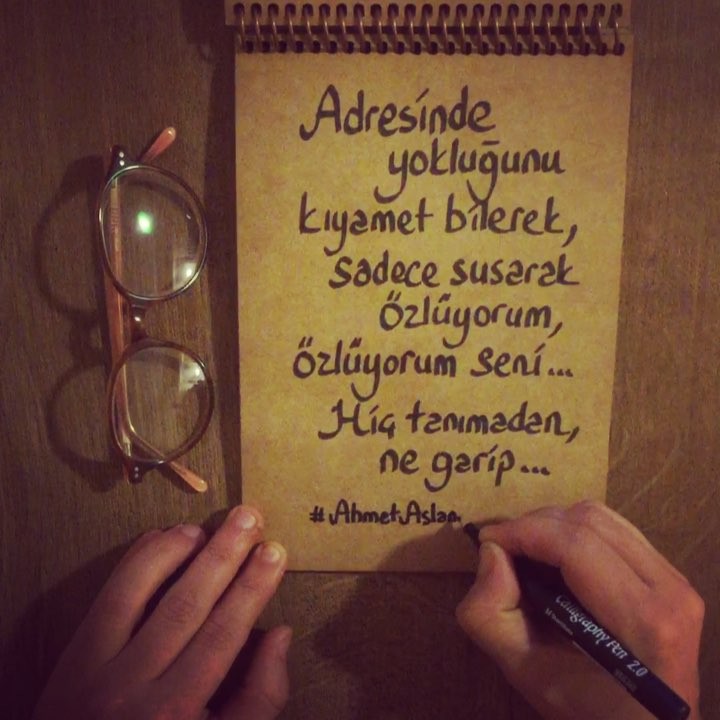 Adresinde
yokluğunu
kıyamet bilerek,
sadece susarak
özlüyorum,
özlüyorum seni...
Hiç tanımadan,
ne garip...
#AhmetAslan
Calligraphy Pen 2.0